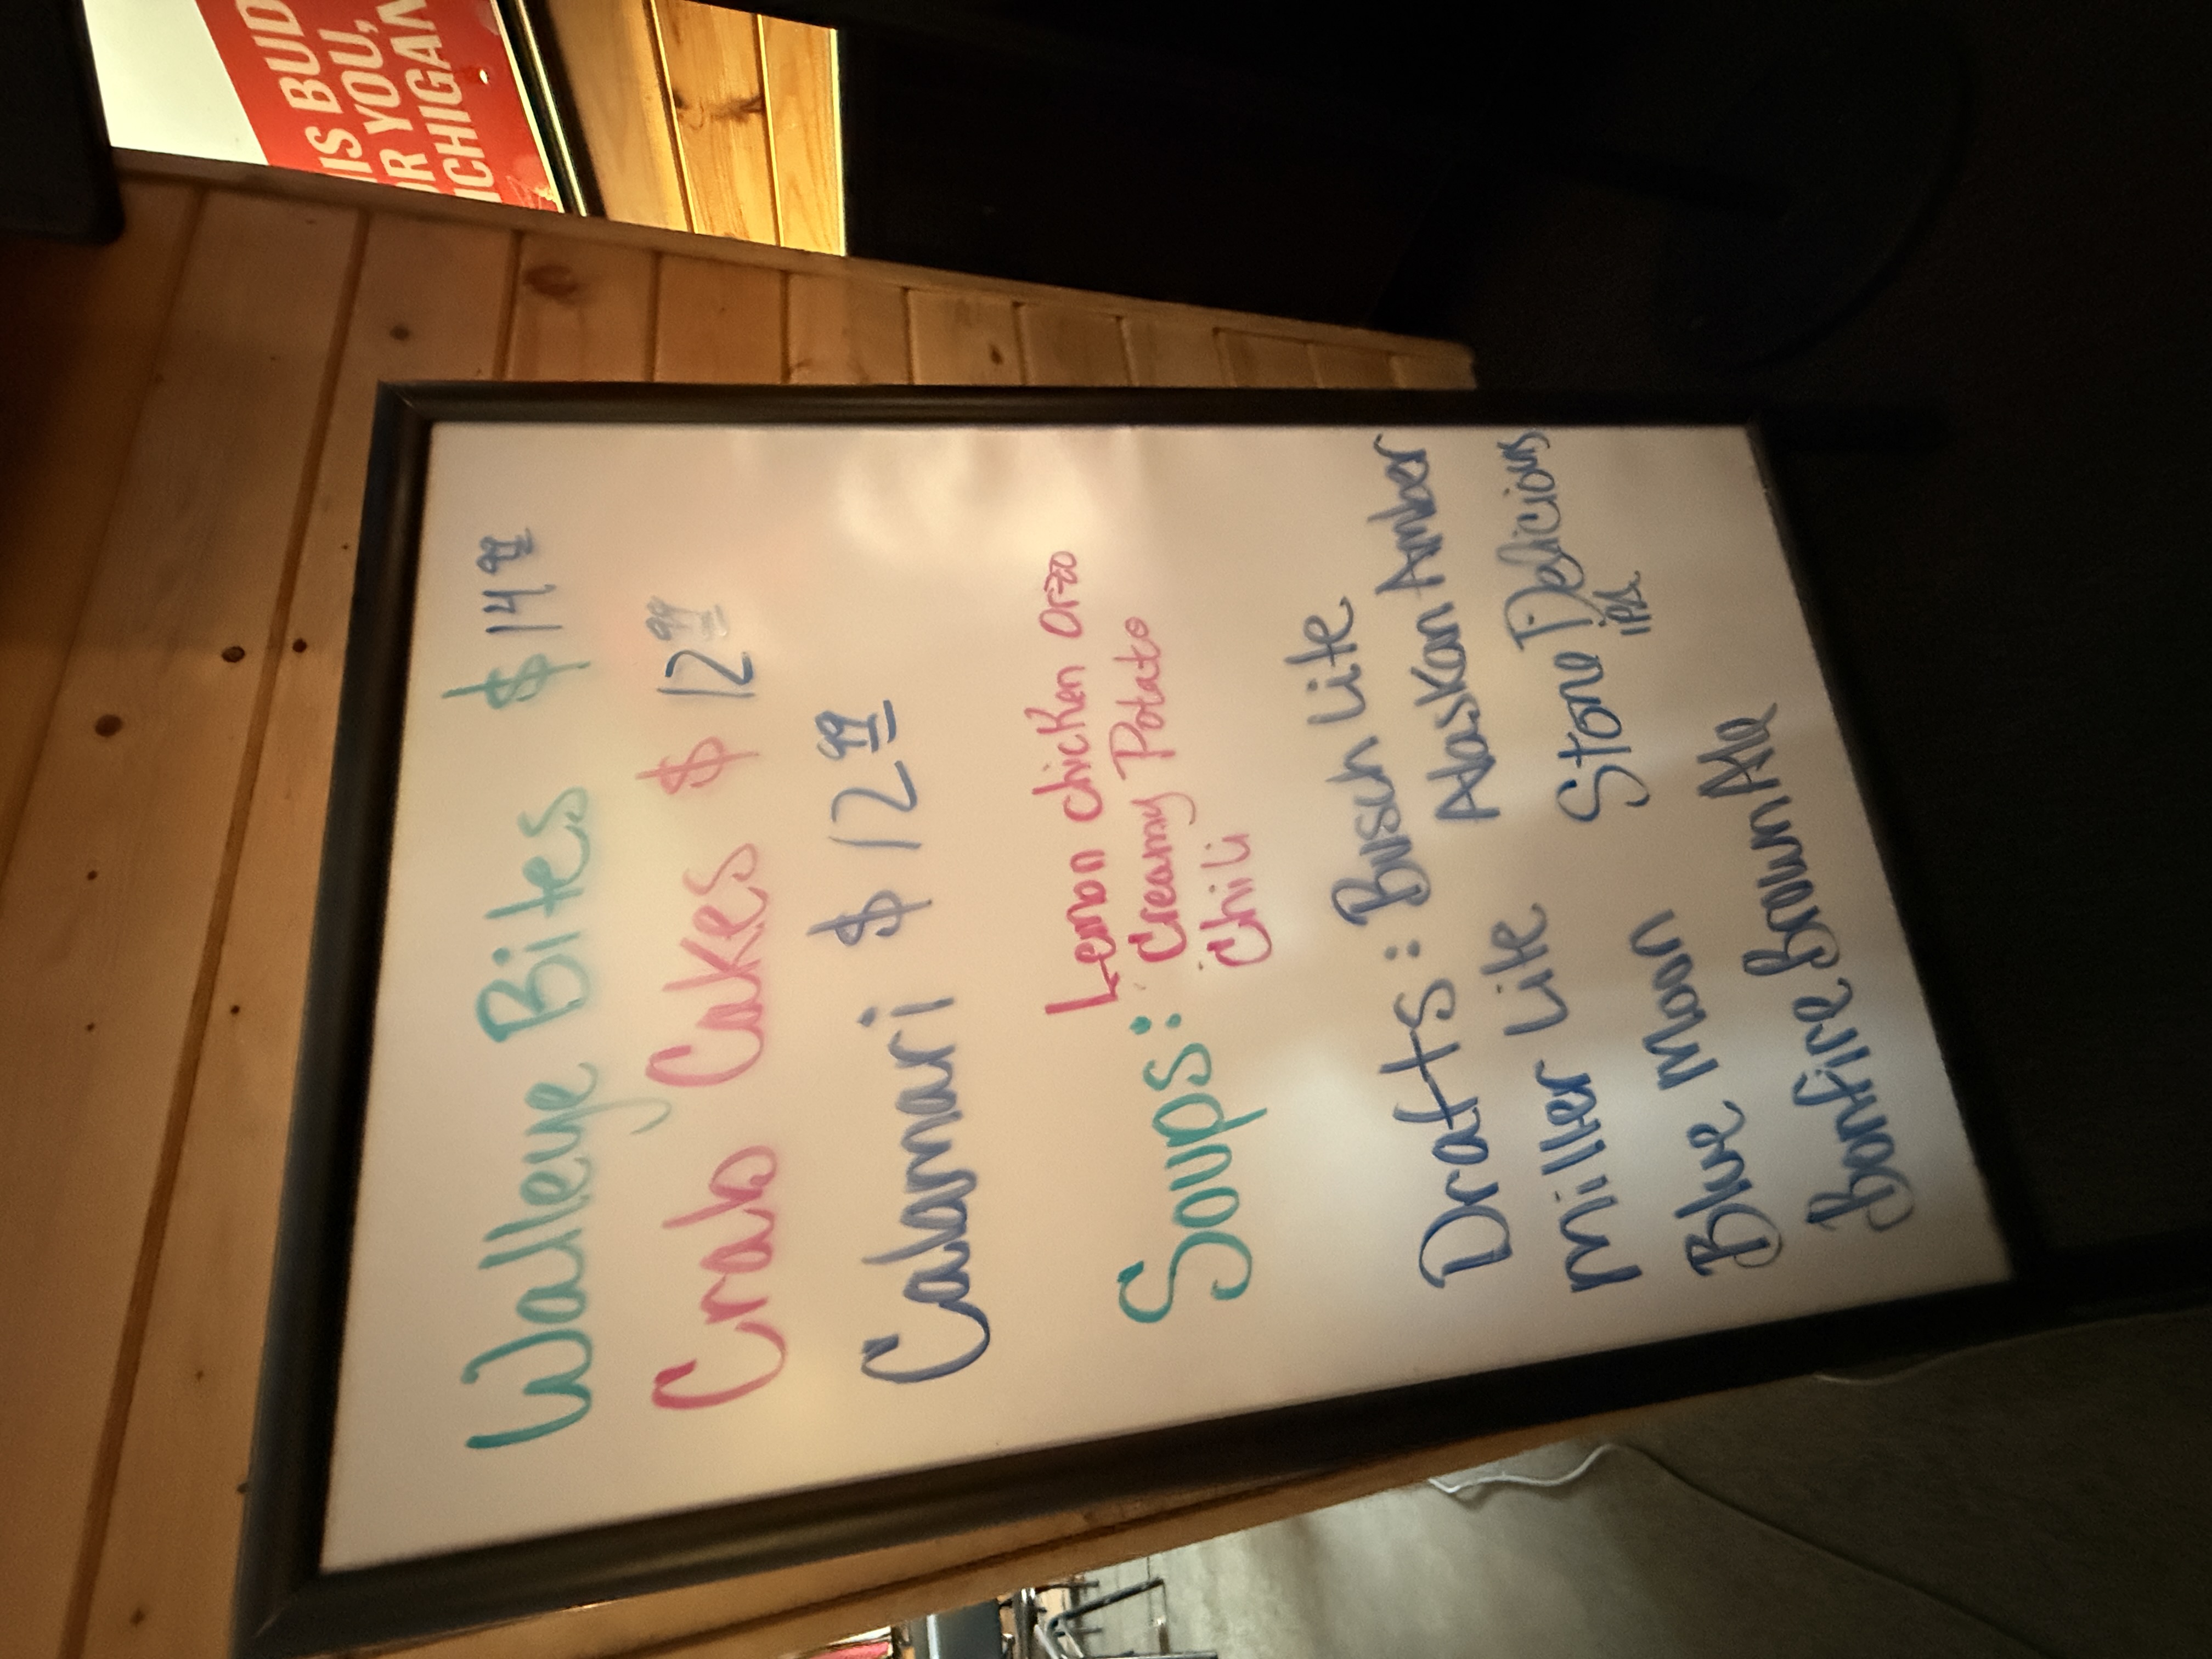 IS BUD
R YOU,
ICHIGAN
Walleye Bites $14 99
Crab Cakes $12 99
Calamari $12 99
Lemon chicken Orzo
Soups: Creamy Potato
Chili
Drafts: Busch Lite
Miller Lite Alaskan Amber
Blue Moon Stone Delicious
IPA
Bonfire Brown Ale